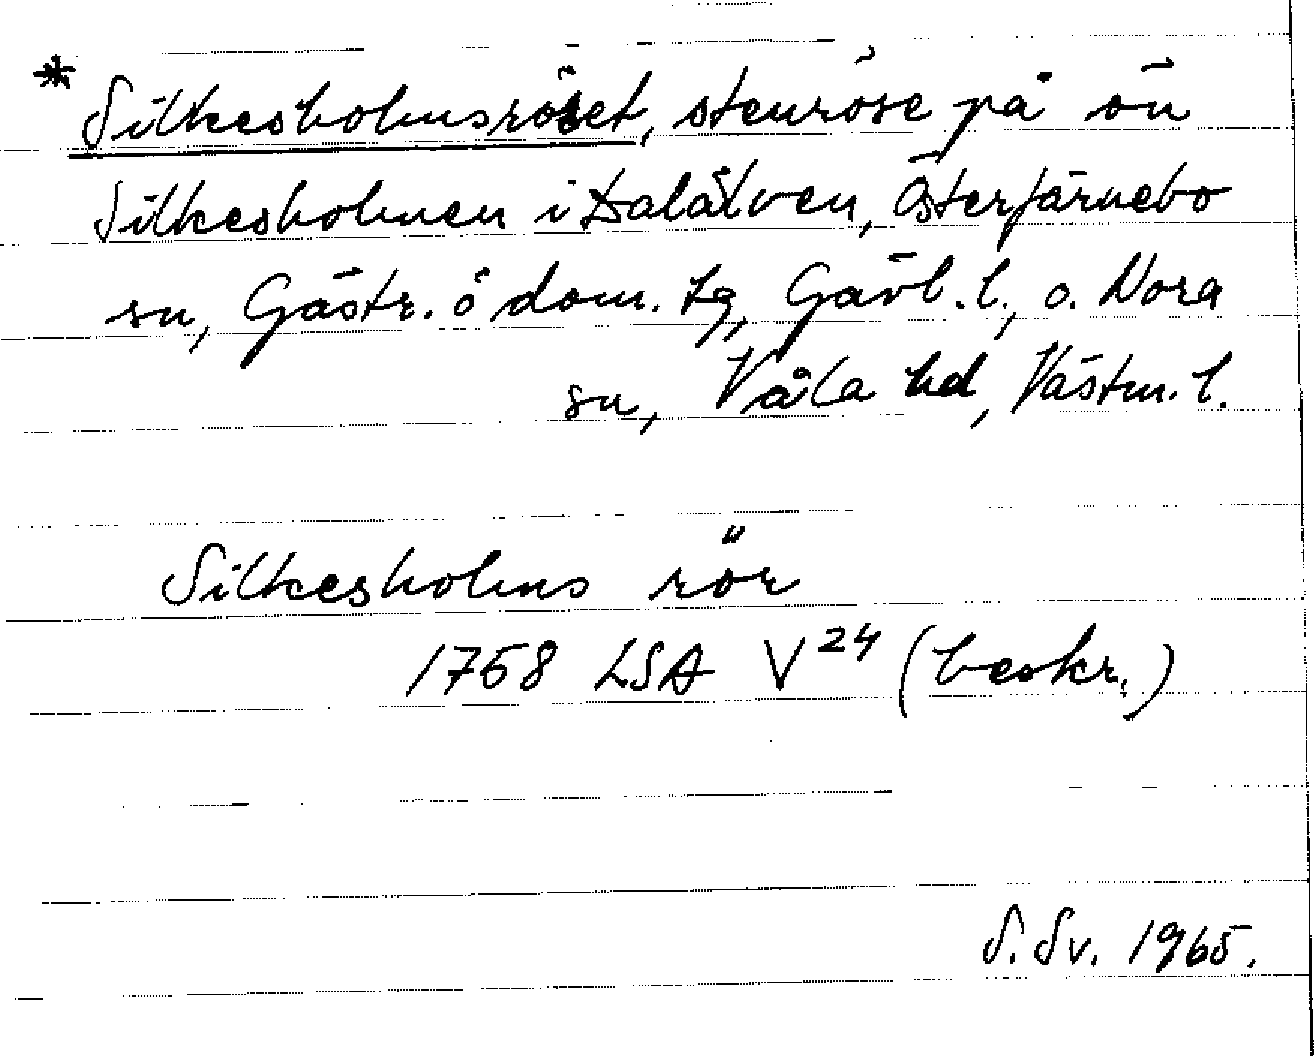 * Silkesholmsröset, stenröse på ön
Silkesholmen i Dalälven, Österfärnebo
sn, Gästr. ö dom. tg, Gävl. l., o. Nora
sn, Våla hd, Västm. l.
Silkesholms rör
1768 LSA V 24 (beskr.)
S. Sv. 1965.